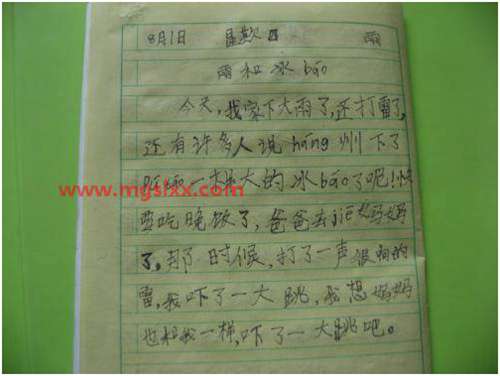 8月1日 星期 雨
雨和冰bāo
今天,我家下大雨了,还打雷了,
还有许多人说háng州下了
一样大的冰bāo了呢!快
要吃晚饭了,爸爸去jiē妈妈
了,那时候,打了一声很响的
雷,我吓了一大跳,我想妈妈
也和我一样,吓了一大跳吧。
www.mgslxx.com